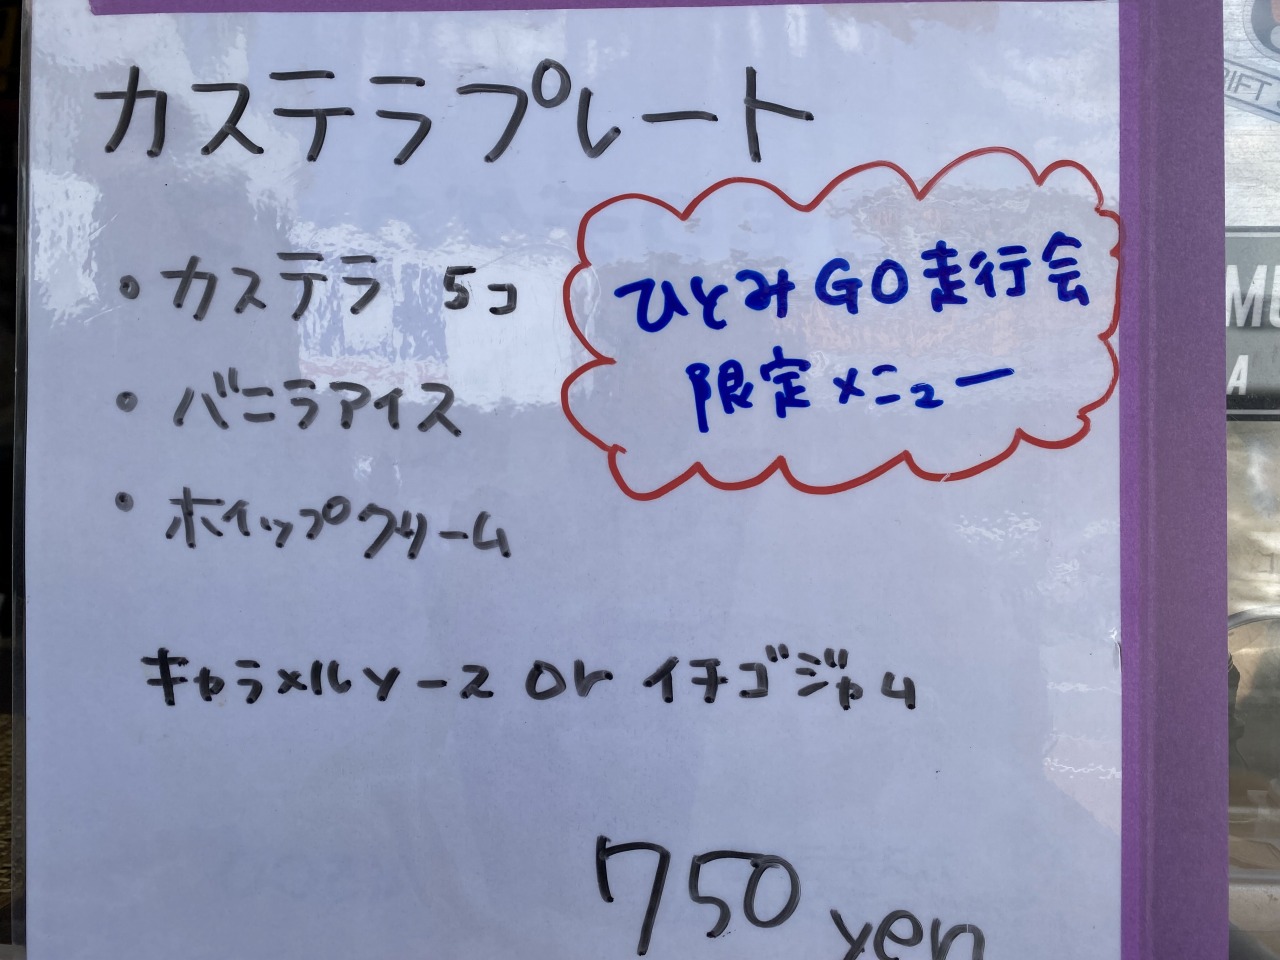 カステラプレート
・カステラ 5コ
・バニラアイス
・ホイップクリーム
ひとみGO走行会
限定メニュー
キャラメルソース or イチゴジャム
750 yen
RIFT
MU
A